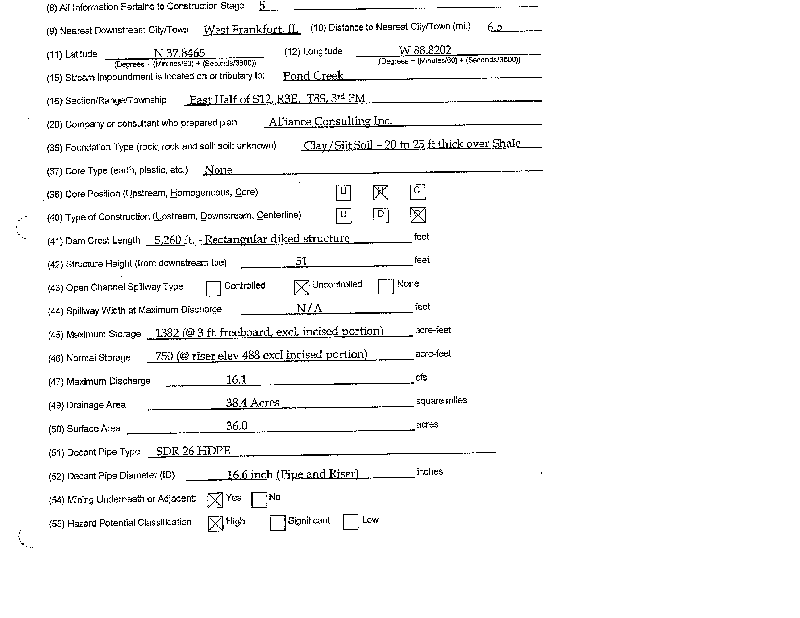 (8) All Information Pertains to Construction Stage 5
(9) Nearest Downstream City/Town West Frankfort, IL (10) Distance to Nearest City/Town (mi.) 6.5
(11) Latitude N 37.8465 (12) Longitude W 88.8202
(Degrees + (Minutes/60) + (Seconds/3600)) (Degrees + (Minutes/60) + (Seconds/3600))
(15) Stream Impoundment is located on or tributary to: Pond Creek
(16) Section/Range/Township East Half of S12, R3E, T8S, 3rd PM
(20) Company or consultant who prepared plan Alliance Consulting Inc.
(36) Foundation Type (rock, rock and soil, soil, unknown) Clay/Silt Soil – 20 to 25 ft thick over Shale
(37) Core Type (earth, plastic, etc.) None
(38) Core Position (Upstream, Homogenous, Core) U H C
(40) Type of Construction (Upstream, Downstream, Centerline) U D C
(41) Dam Crest Length 5,260 ft. - Rectangular diked structure feet
(42) Structure Height (from downstream toe) 51 feet
(43) Open Channel Spillway Type Controlled Uncontrolled None
(44) Spillway Width at Maximum Discharge N/A feet
(45) Maximum Storage 1382 (@ 3 ft. freeboard, excl. incised portion) acre-feet
(46) Normal Storage 750 (@ riser elev 488 excl incised portion) acre-feet
(47) Maximum Discharge 16.1 cfs
(49) Drainage Area 38.4 Acres square miles
(50) Surface Area 36.0 acres
(51) Decant Pipe Type SDR 26 HDPE
(52) Decant Pipe Diameter (ID) 16.6 inch (Pipe and Riser) inches
(54) Mining Underneath or Adjacent Yes No
(55) Hazard Potential Classification High Significant Low